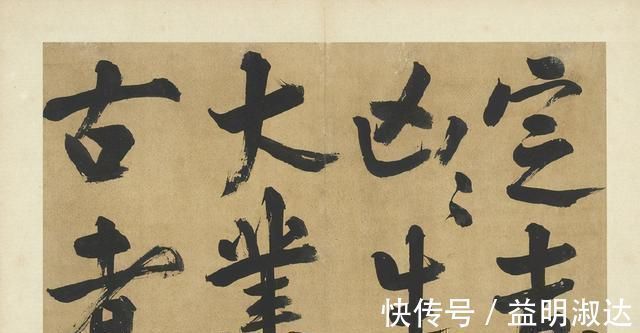 定吉
凶〻生
大業
古者
快传号 / 益明淑达